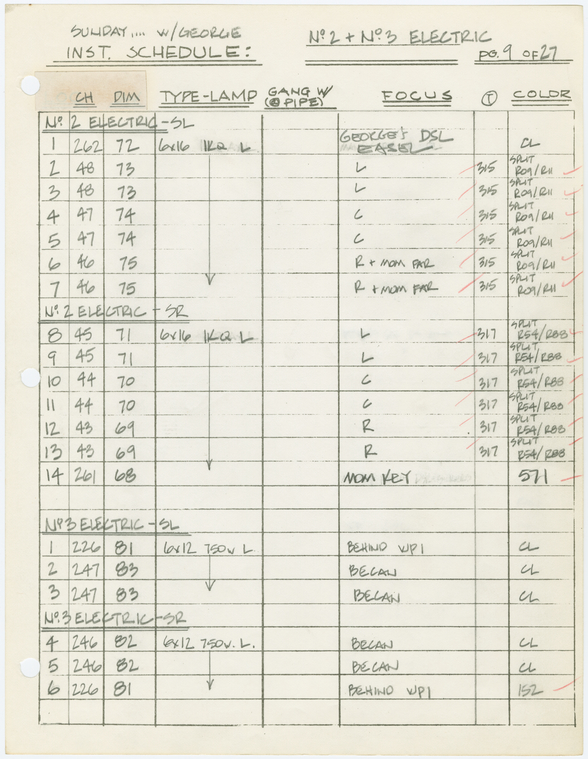 SUNDAY.... W/GEORGE
INST. SCHEDULE:
Nº2 + Nº3 ELECTRIC
PG. 9 OF 27
CH DIM TYPE-LAMP GANG W/ (@ PIPE) FOCUS T COLOR
Nº 2 ELECTRIC-SL
1 262 72 6x16 1KQ L GEORGE'S DSL EASEL CL
2 48 73 L 315 SPLIT R09/R11
3 48 73 L 315 SPLIT R09/R11
4 47 74 C 315 SPLIT R09/R11
5 47 74 C 315 SPLIT R09/R11
6 46 75 R + MOM FAR 315 SPLIT R09/R11
7 46 75 R + MOM FAR 315 SPLIT R09/R11
Nº 2 ELECTRIC-SR
8 45 71 6x16 1KQ L L 317 SPLIT R54/R88
9 45 71 L 317 SPLIT R54/R88
10 44 70 C 317 SPLIT R54/R88
11 44 70 C 317 SPLIT R54/R88
12 43 69 R 317 SPLIT R54/R88
13 43 69 R 317 SPLIT R54/R88
14 261 68 MOM KEY 571
Nº 3 ELECTRIC-SL
1 226 81 6x12 750W L BEHIND WP1 CL
2 247 83 BECAN CL
3 247 83 BECAN CL
Nº 3 ELECTRIC-SR
4 246 82 6x12 750W. L. BECAN CL
5 246 82 BECAN CL
6 226 81 BEHIND WP1 152